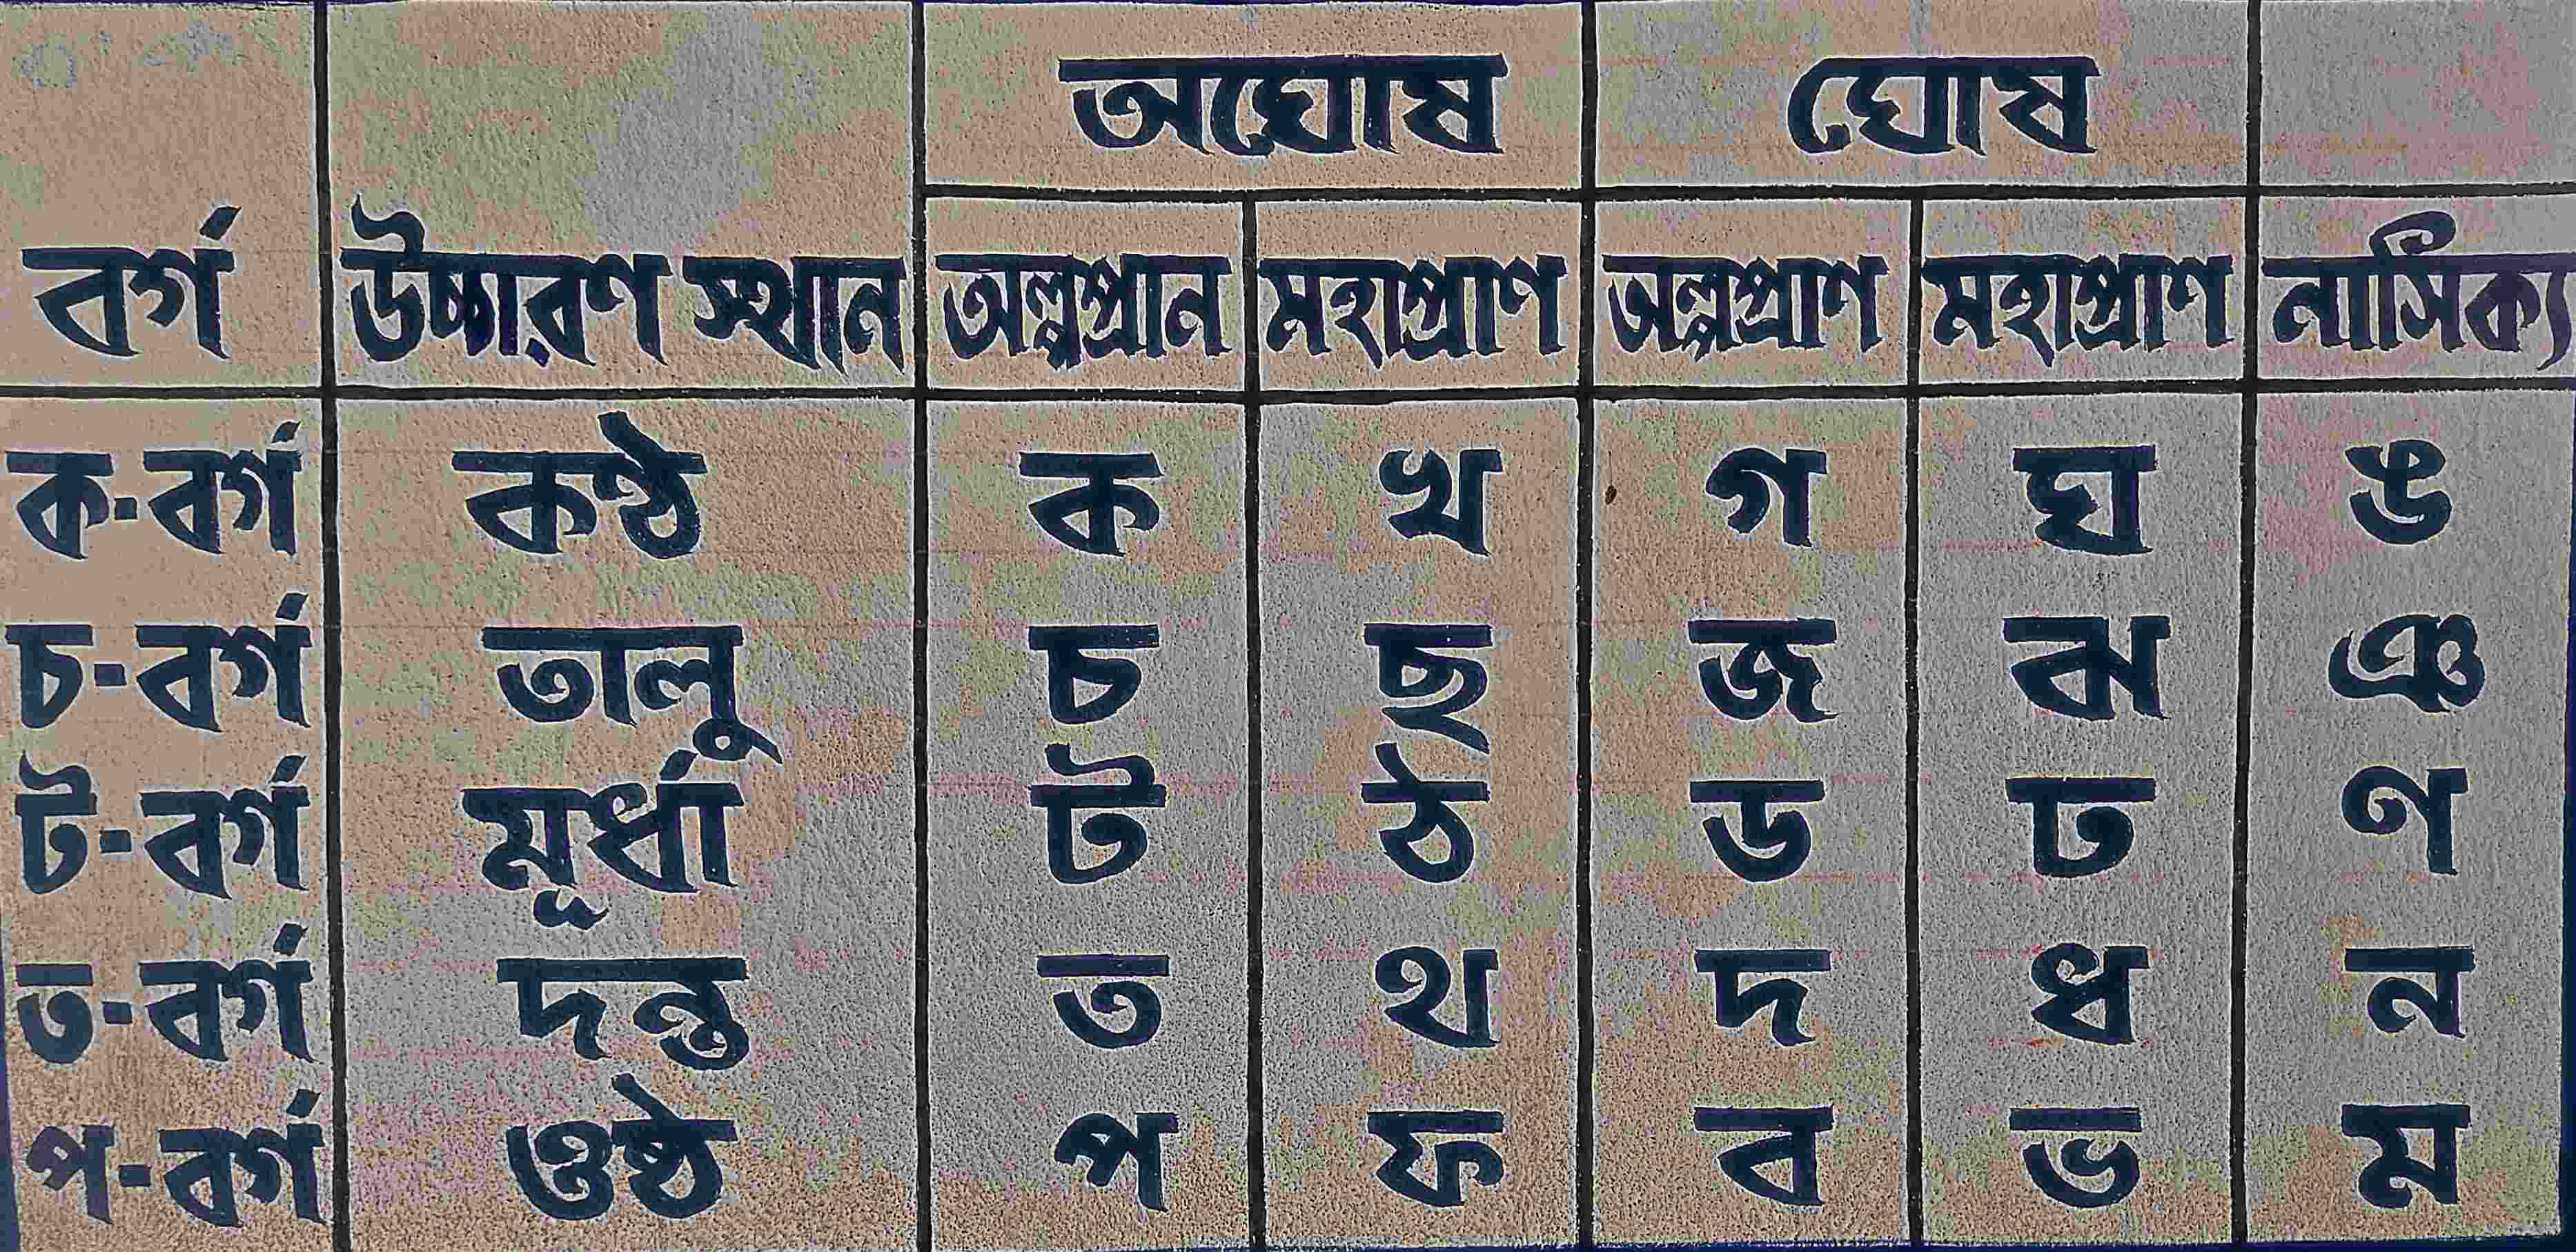 অঘোষ ঘোষ
বর্গ উচ্চারণ স্থান অল্পপ্রান মহাপ্রাণ অল্পপ্রাণ মহাপ্রাণ নাসিক্য
ক-বর্গ কণ্ঠ ক খ গ ঘ ঙ
চ-বর্গ তালু চ ছ জ ঝ ঞ
ট-বর্গ মূর্ধা ট ঠ ড ঢ ণ
ত-বর্গ দন্ত ত থ দ ধ ন
প-বর্গ ওষ্ঠ প ফ ব ভ ম